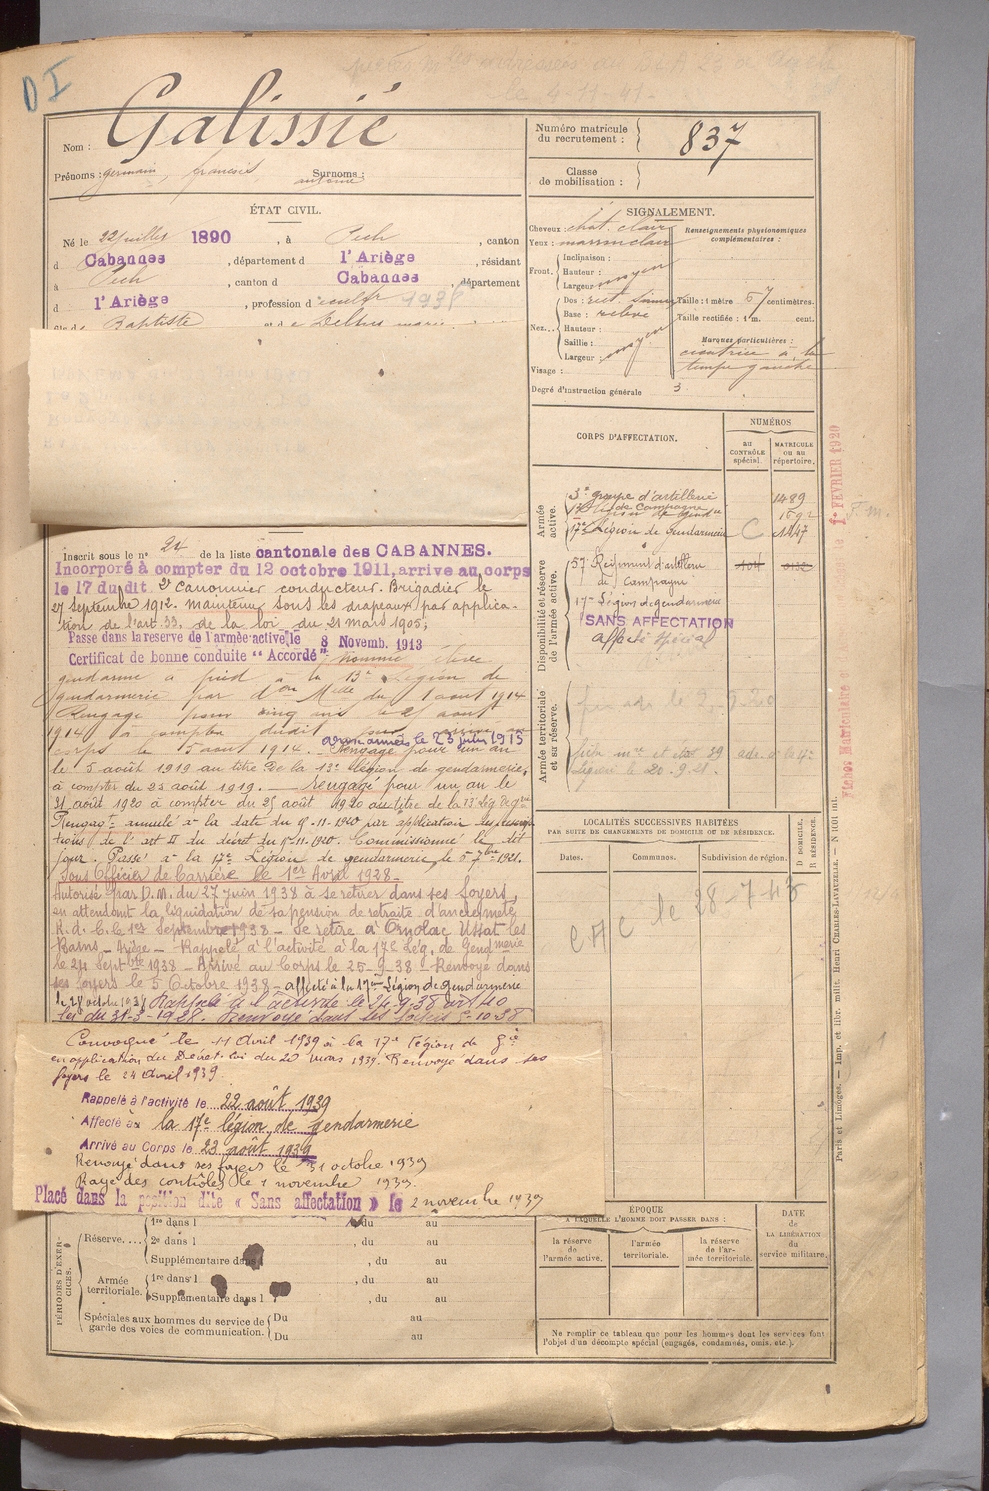 D I
le 4-11-41-
Nom : Galissié
Prénoms : germain, françois, antoine Surnoms :
Numéro matricule du recrutement : 837
Classe de mobilisation :
ÉTAT CIVIL.
Né le 22 juillet 1890, à Pech, canton
d Cabannes, département d l'Ariège, résidant
à Pech, canton d Cabannes, département
d l'Ariège, profession d cultr 1938
Baptiste et de Delhus marie
Inscrit sous le n° 24 de la liste cantonale des CABANNES.
Incorporé à compter du 12 octobre 1911, arrive au corps
le 17 du dit 2e Canonnier conducteur. Brigadier le
27 Septembre 1912. maintenu sous les drapeaux par applica-
tion de l'art. 33. de la loi du 21 mars 1905;
Passe dans la réserve de l'armée active, le 8 Novemb. 1913
Certificat de bonne conduite "Accordé" Nommé élève
gendarme à pied à la 13e Légion de
gendarmerie par don Mlle du 1 août 1914
Rengagé pour cinq ans le 25 août
1914 à compter dudit
corps le 5 août 1914. aux armées le 23 juin 1915 Rengagé pour un an
le 5 août 1919 au titre de la 13e Légion de gendarmerie,
à compter du 25 août 1919. — rengagé pour un an le
31 août 1920 à compter du 25 août 1920 au titre de la 13e Lég. de gie
Rengagt annulé à la date du 18-11-1920 par application des prescrip-
tions de l'art II du décret du 5-11-1920. Commissionné le dit
jour. Passé à la 17e Légion de gendarmerie, le 5 7bre 1921.
Sous Officier de Carrière le 1er Avril 1928 -
Autorisé par D.M. du 27 juin 1938 à se retirer dans ses foyers,
en attendant la liquidation de sa pension de retraite d'ancienneté,
R. d. C. le 1er Septembre 1938 - Se retire à Ornolac Ussat les
Bains - Ariège - Rappelé à l'activité à la 17e Lég. de Gendmerie
le 24 Septbre 1938 - Arrivé au Corps le 25-9-38 - Renvoyé dans
ses foyers le 5 Octobre 1938 - affecté à la 17ème Légion de gendarmerie
le 28 octobre 1938 Rappelé à l'activité le 24.9.38 art 40
loi du 31-3-1928. Renvoyé dans ses foyers 5-10-38
Convoqué le 11 Avril 1939 à la 17e légion de Gie
en application du Décret-loi du 20 mars 1939. Renvoyé dans ses
foyers le 24 Avril 1939
Rappelé à l'activité le 22 août 1939
Affecté à la 17e légion de gendarmerie
Arrivé au Corps le 23 août 1939
Renvoyé dans ses foyers le 31 octobre 1939
Rayé des contrôles le 1 novembre 1939.
Placé dans la position dite « Sans affectation » le 2 novembre 1939
PÉRIODES D'EXERCICES.
Réserve....
1re dans l , du au
2e dans l , du au
Supplémentaire dans l , du au
Armée territoriale.
1re dans l , du au
Supplémentaire dans l , du au
Spéciales aux hommes du service de garde des voies de communication.
Du au
Du au
SIGNALEMENT.
Cheveux chat. clair
Yeux : marron clair
Front.
Inclinaison :
Hauteur : moyen
Largeur
Nez..
Dos : rect. sinueux
Base : relevé
Hauteur :
Saillie : moyen
Largeur :
Visage :
Degré d'instruction générale 3
Renseignements physionomiques complémentaires :
Taille : 1 mètre 67 centimètres.
Taille rectifiée : 1 m. cent.
Marques particulières :
cicatrice à la
tempe gauche
CORPS D'AFFECTATION.
NUMÉROS
au contrôle spécial.
MATRICULE ou au répertoire.
Armée active.
3e groupe d'artillerie 1489
de Campagne
17e Légion de gendarmerie C 1247
Disponibilité et réserve de l'armée active.
57e Régiment d'artillerie
de Campagne
17e Légion de gendarmerie
SANS AFFECTATION
affecté spécial
Armée territoriale et sa réserve.
LOCALITÉS SUCCESSIVES HABITÉES
PAR SUITE DE CHANGEMENTS DE DOMICILE OU DE RÉSIDENCE.
Dates. Communes. Subdivision de région. D DOMICILE. R RÉSIDENCE.
CAC le 28-7-43
ÉPOQUE
A LAQUELLE L'HOMME DOIT PASSER DANS :
la réserve de l'armée active.
l'armée territoriale.
la réserve de l'armée territoriale.
DATE de LA LIBÉRATION du service militaire.
Ne remplir ce tableau que pour les hommes dont les services font
l'objet d'un décompte spécial (engagés, condamnés, omis, etc.).
1er FEVRIER 1920
Paris et Limoges. — Imp. et libr. milit. Henri CHARLES-LAVAUZELLE.